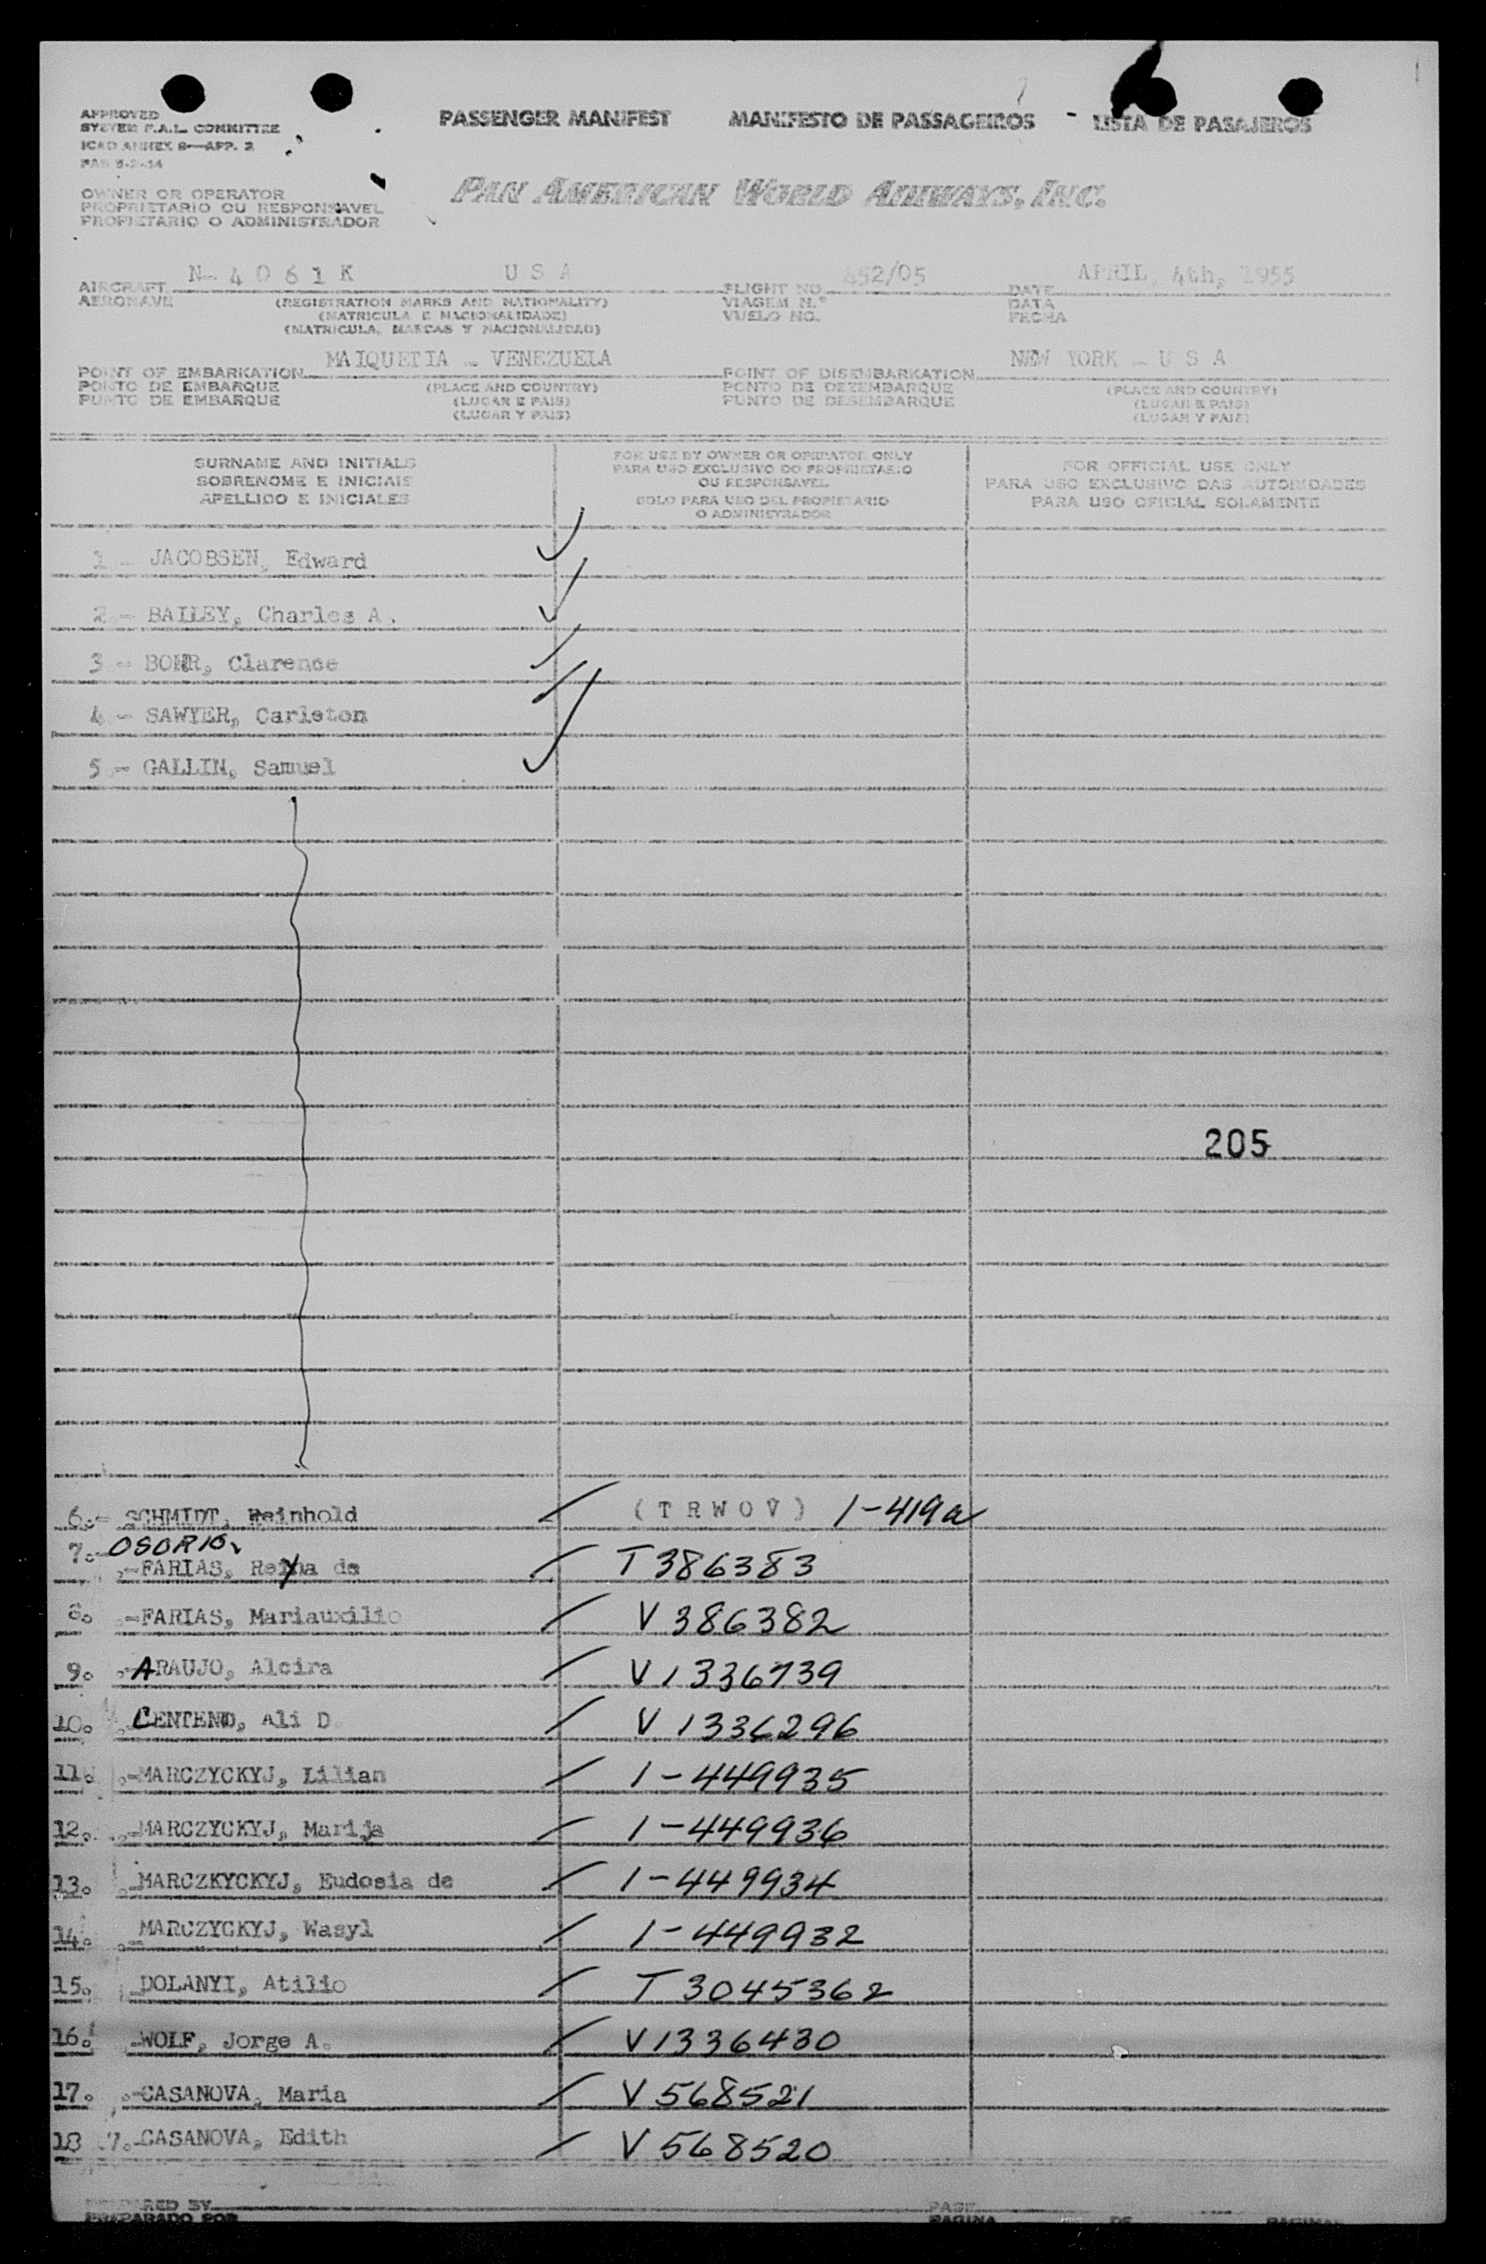 APPROVED
SYSTEM F.A.L. COMMITTEE
ICAO ANNEX 9—APP. 2
PASSENGER MANIFEST MANIFESTO DE PASSAGEIROS - LISTA DE PASAJEROS
PAN AMERICAN WORLD AIRWAYS, INC.
OWNER OR OPERATOR
PROPRIETARIO OU RESPONSAVEL
PROPIETARIO O ADMINISTRADOR
AIRCRAFT N- 4 0 6 1 K U S A FLIGHT NO. 452/05 DATE APRIL, 4th, 1955
AERONAVE (REGISTRATION MARKS AND NATIONALITY) VIAGEM N.° DATA
(MATRICULA E NACIONALIDADE) VUELO NO. FECHA
(MATRICULA, MARCAS Y NACIONALIDAD)
POINT OF EMBARKATION MAIQUETIA - VENEZUELA POINT OF DISEMBARKATION NEW YORK - U S A
PONTO DE EMBARQUE (PLACE AND COUNTRY) PONTO DE DEZEMBARQUE (PLACE AND COUNTRY)
PUNTO DE EMBARQUE (LUGAR E PAIS) PUNTO DE DESEMBARQUE (LUGAR E PAIS)
(LUGAR Y PAIS) (LUGAR Y PAIS)
SURNAME AND INITIALS
SOBRENOME E INICIAIS
APELLIDO E INICIALES
FOR USE BY OWNER OR OPERATOR ONLY
PARA USO EXCLUSIVO DO PROPRIETARIO
OU RESPONSAVEL
SOLO PARA USO DEL PROPIETARIO
O ADMINISTRADOR
FOR OFFICIAL USE ONLY
PARA USO EXCLUSIVO DAS AUTORIDADES
PARA USO OFICIAL SOLAMENTE
1 - JACOBSEN, Edward
2.- BAILEY, Charles A.
3 - BOHR, Clarence
4 - SAWYER, Carleton
5.- GALLIN, Samuel
205
6.- SCHMIDT, Reinhold ( T R W O V ) 1-419a
7.- OSORIO,
.-FARIAS, Reyna de T 386383
8. .-FARIAS, Mariauxilio V 386382
9. .-ARAUJO, Alcira V 1336739
10. .CENTENO, Ali D. V 1336296
11. .-MARCZYCKYJ, Lilian 1-449935
12. .-MARCZYCKYJ, Marija 1-449936
13. .-MARCZKYCKYJ, Eudosia de 1-449934
14. .-MARCZYCKYJ, Wasyl 1-449932
15. DOLANYI, Atilio T 3045362
16. -WOLF, Jorge A. V 1336430
17. .-CASANOVA, Maria V 568521
18 7.-CASANOVA, Edith V 568520
PREPARED BY PAGE
PREPARADO POR PAGINA DE PAGINAS